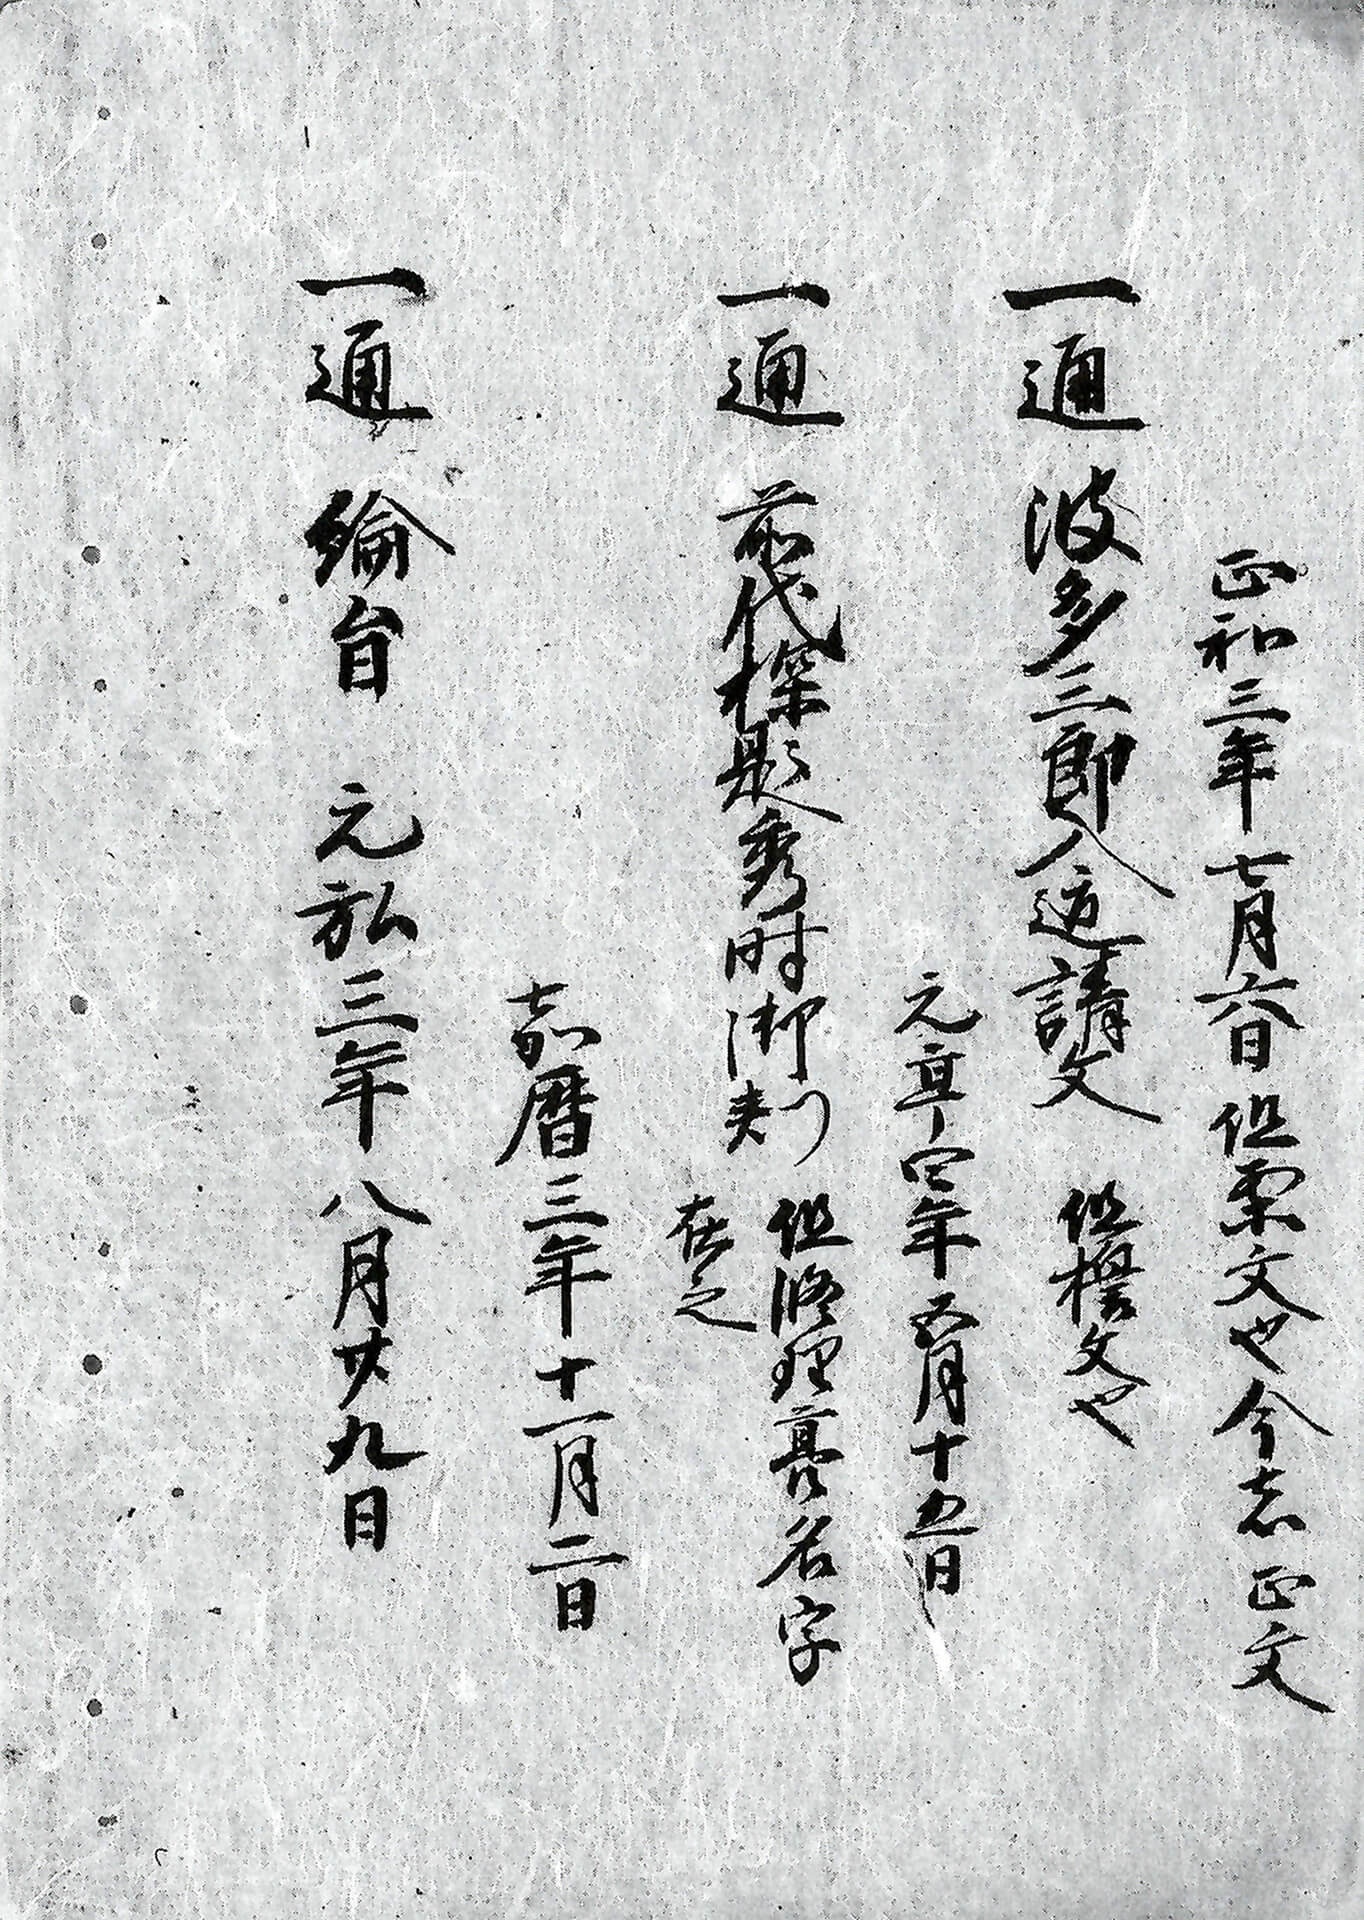 正和三年七月六日 但案文也今正文
一通 波多三郎入道請文 但文也
元亨四年五月十五日
一通 前代探題秀時御判 但修理亮名字
在之
嘉暦三年十一月二日
一通 綸旨 元弘三年八月廿九日